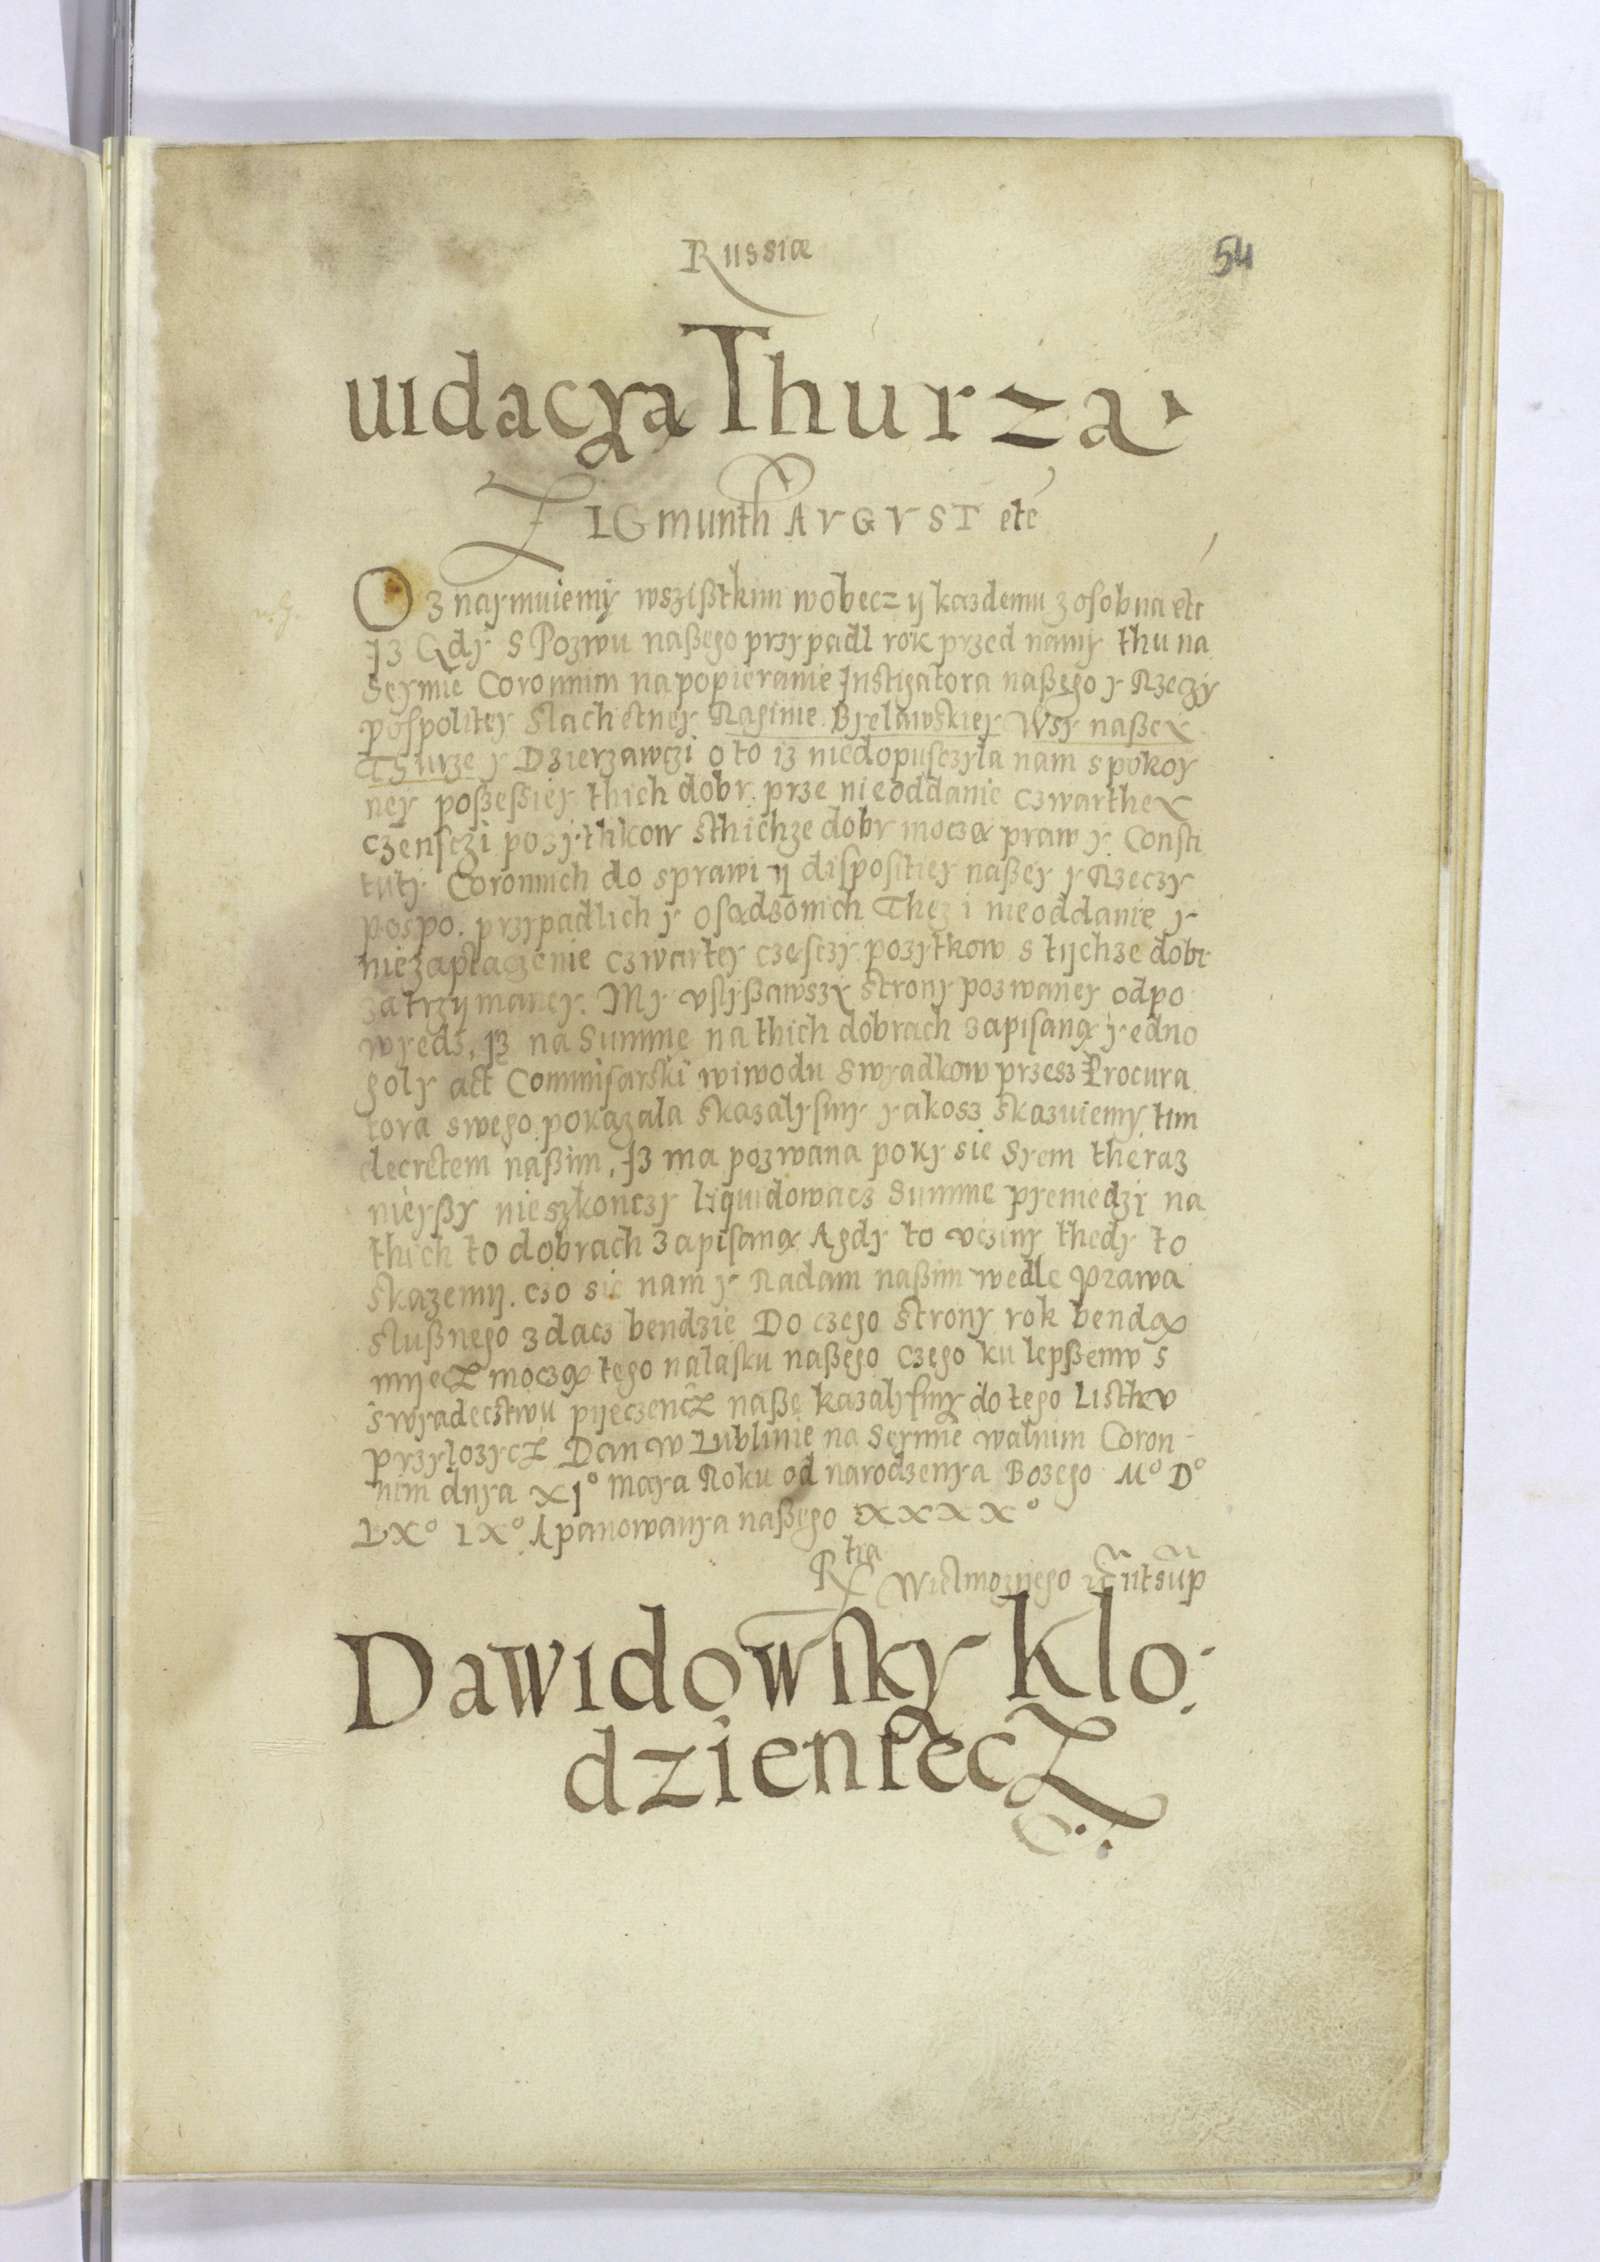 Russiæ
54
uidacÿa Thurza
ZIGmunth AVGVST etc
Oznaymuiemy wszisstkim wobecz y kazdemu zosobna etc
Iz Gdy s Pozwu naßego przypadl rok przed namy thu na
Seymie Coronnim na popieranie Instigatora naßego y Rzeczy
pospolitey slachetney Raginie Byelawskiey Wsy naßey
Thurze y Dzierzawczi o to iz niedopusczyla nam spokoy
ney poßeßiey thich dobr prze nieoddanie czwarthey
czensczi pozythkow sthichze dobr moczą praw y Consti
tuty Coronnich do sprawi y dispositiey naßey y Rzeczy
pospo. przypadlich y osądzonich Thez i nieoddanie y
niezaplaczenie czwartey czesczy pozytkow s tychze dobr
zatrzymaney. My uslyßawszy strony pozwaney odpo
wyedz, Iz na summe na thich dobrach zapisaną yedno
goly act Commisarski wiwodu swyadkow przesz Procura
tora swego pokazala skazalysmy yakosz skazuiemy tim
decretem naßim, Iz ma pozwana poky sie Syem theraz
nieyßy nieszkonczy liquidowacz summe pyeniedzy na
thich to dobrach zapisaną A gdy to uczyny thedy to
skazemy. czo sie nam y Radam naßim wedle prawa
slußnego zdacz bendzie Do czego strony rok bendą
myecz moczą tego nalasku naßego czego ku lepßemu s
swyadectwu pyeczencz naßę kazalysmy do tego Listhu
przylozycz Dan w Lublinie na Seymie walnim Coron
nim dnya XI° maya Roku od narodzenya Bozego M° D°
LX° IX° A panowanya naßego XXXX°
Rtia Wielmoznego ut sup
Dawidowsky Klo
dzieniecz